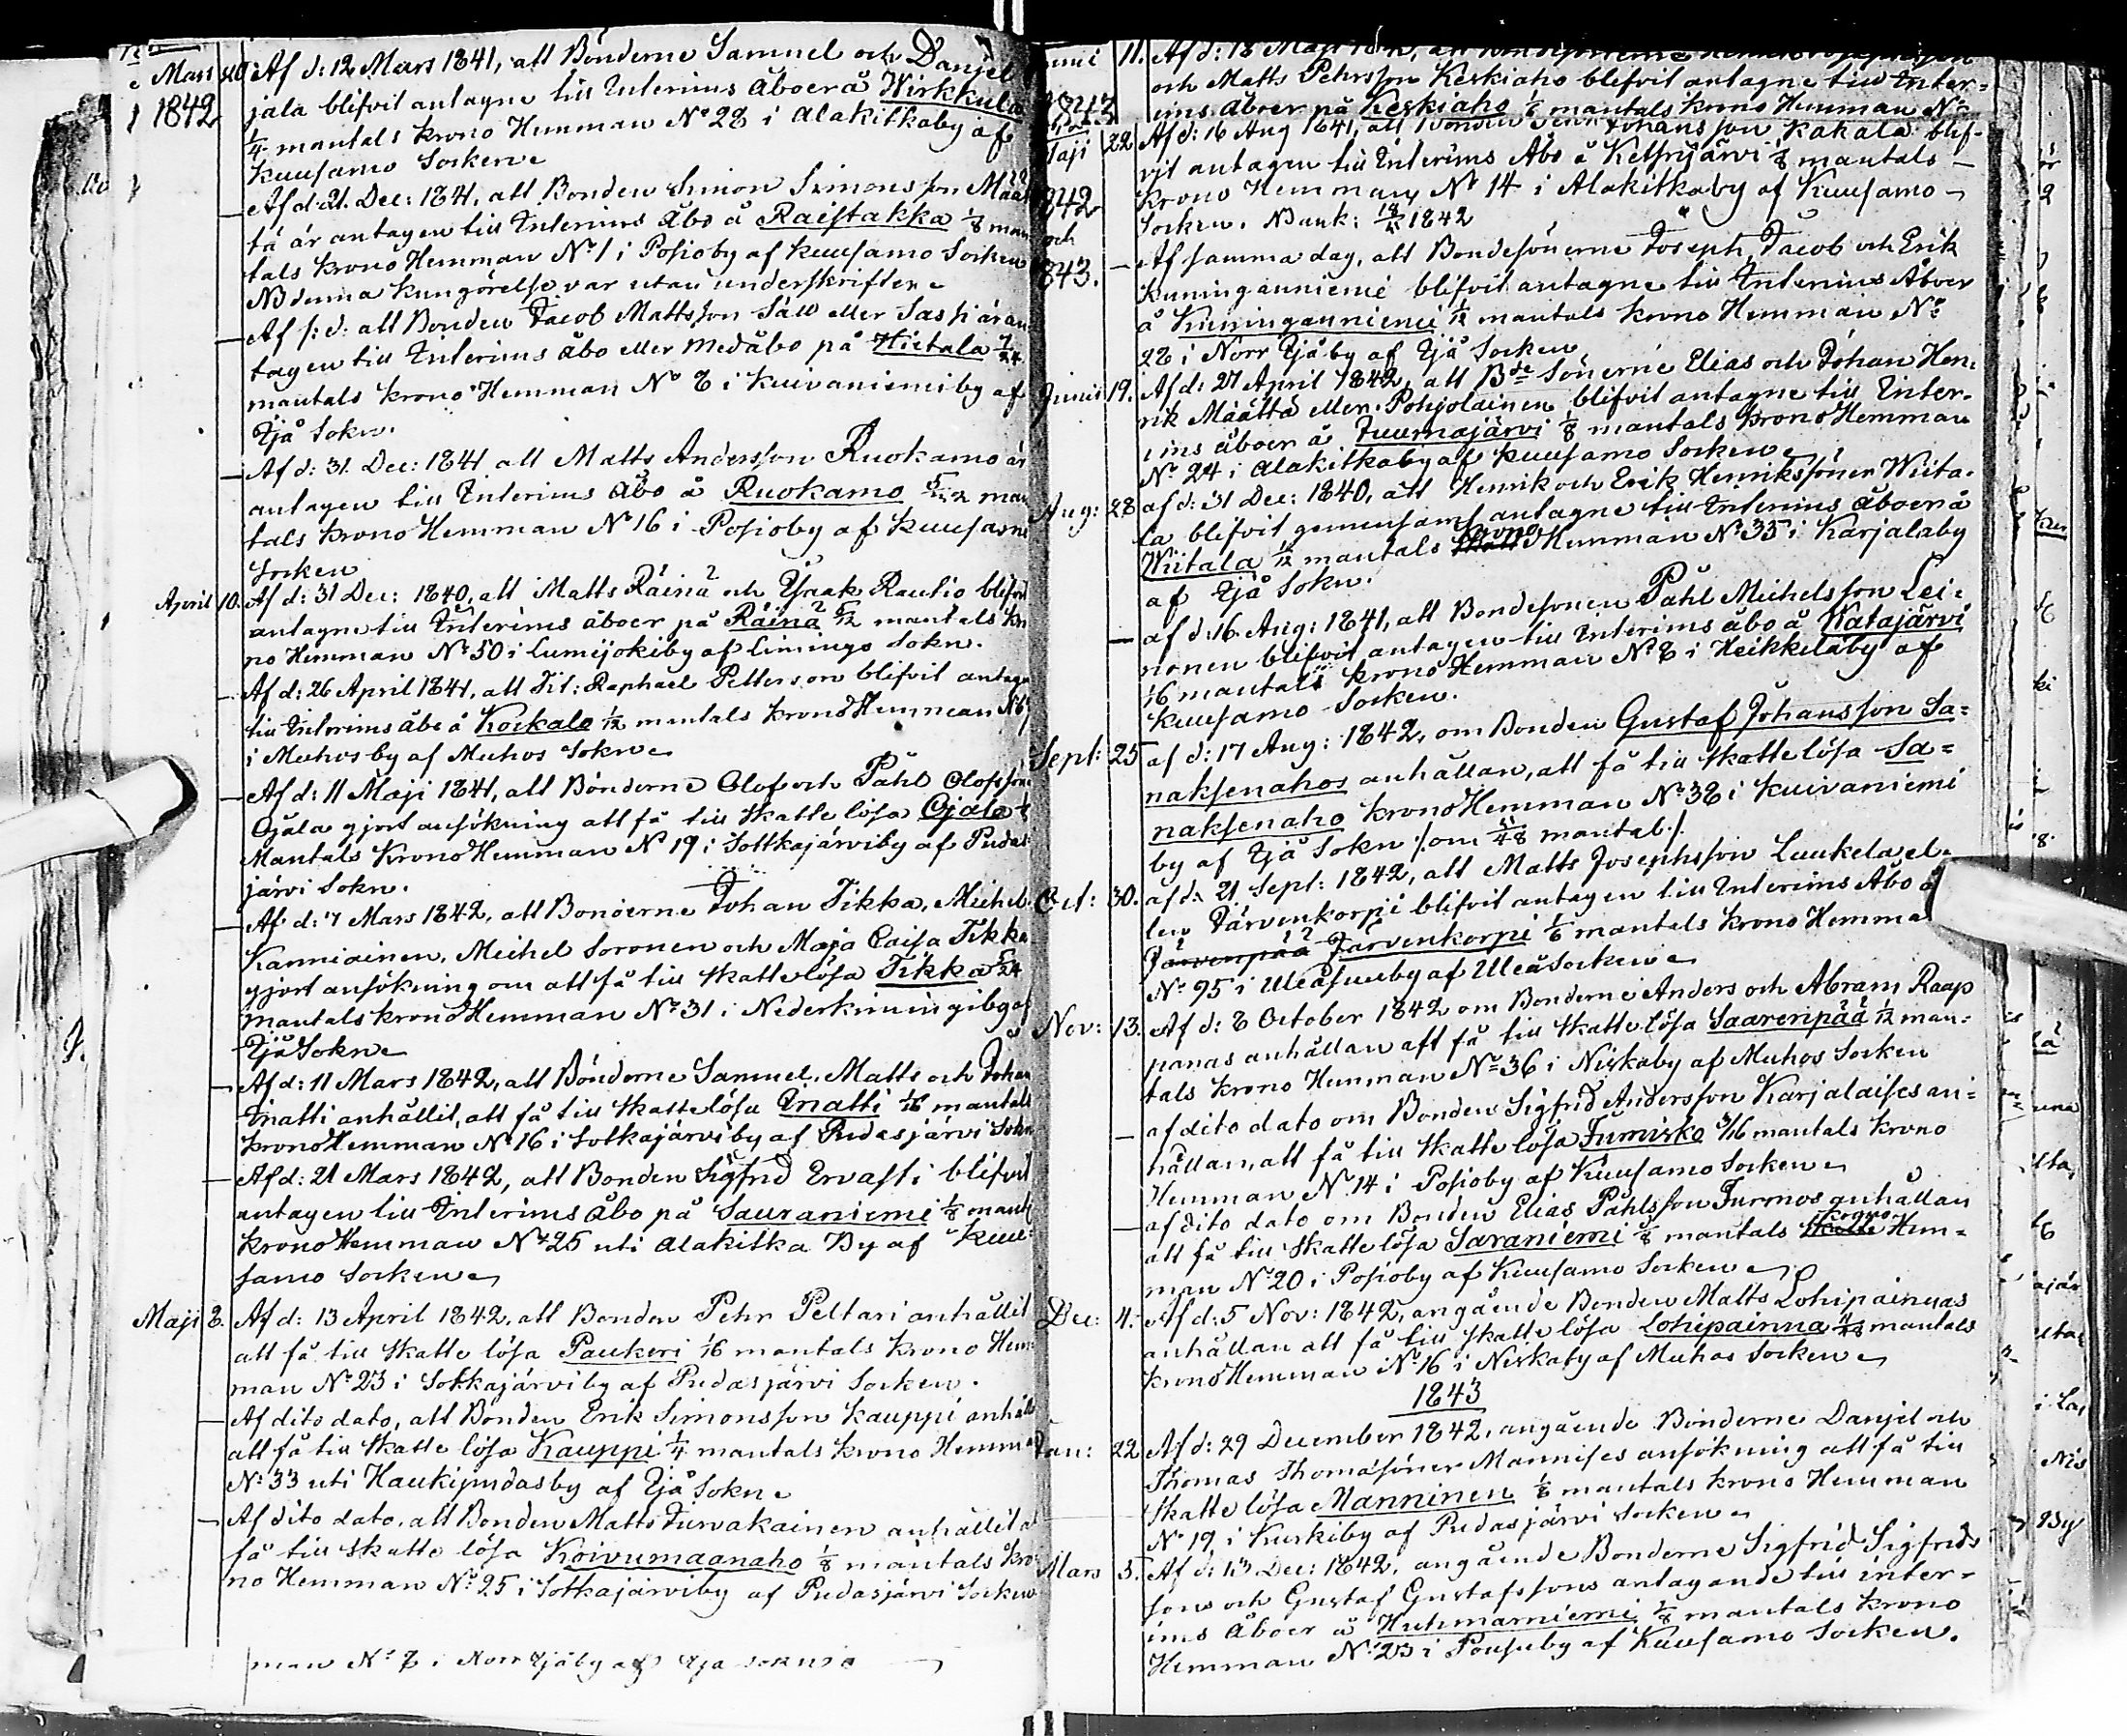 Mars 20 Af d: 12 Mars 1841, att Bönderne Samuel och Danjel
1842 jala blifvit antagne till Interims Åboer å Wirkkula
1/4 mantals Krono Hemman No 28 i Alakitkaby af
Kuusamo Socken
— Af d: 21. Dec: 1841, att Bonden Simon Simonsson Määt
tä är antagen till Interims Åbo å Raistakka 1/8 man
tals Krono Hemman No 1 i Posioby af Kuusamo Socken
NB denna kungörelse var utan underskrifter
— Af s: d: att Bonden Jacob Mattsson Säll eller Saspi är an
tagen till Interims åbo eller medåbo på Hietala 7/24
mantals Krono Hemman No 8 i Kuivaniemiby af
Ijå Sokn.
— Af d: 31. Dec: 1841 att Matts Andersson Ruokamo är
antagen till Interims Åbo å Ruokamo man
tals Krono Hemman No 16 i Posioby af Kuusamo
Socken
April 10. Af d: 31 Dec: 1840, att Matts Räinä och Isaak Rautio blifvit
antagne till Interims åboer på Räinä 5/12 mantals Kro
no Hemman No 50 i Lumijokiby af Limingo Sokn.
— Af d: 26 April 1841, att Tit: Raphael Petterson blifvit antage
till Interims åbo å Kockalo 1/12 mantals Krono Hemman No
i Muhosby af Muhos Sokn
— Af d: 11 Maji 1841, att Bönderne Olof och Påhl Olofsson
Ojala gjort ansökning att få till Skatte lösa Ojala
Mantals Krono Hemman No 19 i Sottkajärviby af Pudas
järvi Sokn.
— Af d: 7 Mars 1842, att Bönderne Johan Tikka, Michel
Kanniainen, Michel Soronen och Maja Caisa Tikka
gjort ansökning om att få till Skatte lösa Tikka 5/24
mantals Krono Hemman No 31 i Nederkimingiby af
Ijå Sokn
— Af d: 11 Mars 1842, att Bönderne Samuel, Matts och Johan
Inatti anhållit, att få till Skatte lösa Inatti 1/16 mantals
Krono Hemman No 16 i Sotkajärviby af Pudasjärvi Sokn
— Af d: 21 Mars 1842, att Bonden Sigfrid Ervasti blifvit
antagen till Interims åbo på Sauraniemi 1/8 mant
Krono Hemman No 25 uti Alakitka By af Kuu
samo Socken
Maji 8. Af d: 13 April 1842, att Bonden Pehr Peltari anhållit
att få till Skatte lösa Paukeri 1/16 mantals Krono Hem
man No 23 i Sotkajärviby af Pudasjärvi Socken.
— Af dito dato, att Bonden Erik Simonsson Kauppi anhåll
att få till Skatte lösa Kauppi 1/4 mantals Krono Hemma
No 33 uti Haukipudasby af Ijå Sokn
— Af dito dato, att Bonden Matts Turvakainen anhållit a
få till Skatte lösa Koivumaanaho 1/8 mantals Kro
no Hemman No 25 i Sotkajärviby af Pudasjärvi Socken
man No 8 i Norr Ijåby af Ijå
11. Af d: 18 Maji
och Matts Pehrsson Keskiaho blifvit antagne till Inter=
ims åboer på Keskiaho mantals Krono Hemman No
Maji 22 Af d: 16 Aug 1841, att Bonden Johansson Kakala blif-
vit antagen till Interims Åbo å 1/8 mantals —
1842 Krono Hemman No 14 i Alakitkaby af Kuusamo
Socken. 1842
och
1843. — Af samma dag, att Bondesönerne Joseph, Jacob och Erik
Kuninganniemi blifvit antagne till Interims Åboer
å Kuninganniemi 1/12 mantals Krono Hemman No
28 i Norr Ijåby af Ijå Socken
Junii 19. Af d: 27 April 1842, att Bde Sönerne Elias och Johan Hen-
rik Määttä eller Pohjolainen blifvit antagne till Inter-
ims åboer å Juumajärvi 1/8 mantals Krono Hemman
No 24 i Alakitkaby af Kuusamo Socken
Aug: 28 af d: 31 Dec: 1840, att Henrik och Erik Henrikssöner Wiita-
la blifvit gemensamt antagne till Interims åboer å
Wiitala 1/12 mantals Krono Hemman No 35 i Karjalaby
af Ijå Sokn.
— af d: 16. Aug: 1841, att Bondesonen Påhl Michelsson Lei=
nonen blifvit antagen till Interims åbo å Katajärvi
1/16 mantals Krono Hemman No 8 i Heikkeläby af
Kuusamo Socken.
Sept: 25 af d: 17 Aug: 1842, om Bonden Gustaf Johansson Sa=
naksenahos anhållan, att få till Skatte lösa Sa=
naksenaho Krono Hemman No 38 i Kuivaniemi
by af Ijå Sokn /: om 11/48 mantal :/
Oct: 30. af d: 21 Sept: 1842, att Matts Josephsson Luukela el-
ler Järvenkorpi blifvit antagen till Interims Åbo å
Järvenpää Järvenkorpi 1/6 mantals Krono Hemma
No 95 i Uleåsuuby af Uleå Socken
Nov: 13. Af d: 8 October 1842 om Bönderne Anders och Abram Raap
panas anhållan att få till Skatte lösa Saarenpää 1/12 man=
tals Krono Hemman No 36 i Niskaby af Muhos Socken
— af dito dato om Bonden Sigfrid Andersson Karjalaises an=
hållan, att få till Skatte lösa Jumisko 3/16 mantals Krono
Hemman No 14 i Posioby af Kuusamo Socken
— af dito dato om Bonden Elias Påhlsson Jurmos anhållan
att få till Skatte lösa Säräniemi 1/8 mantals Skatte Krono Hem=
man No 20 i Posioby af Kuusamo Socken
Dec: 4. Af d: 5 Nov: 1842, angående Bonden Matts Lohipainnas
anhållan att få till Skatte lösa Lohipainna mantals
Krono Hemman No 16 i Niskaby af Muhos Socken
1843
Jan: 22 Af d: 29 December 1842, angående Bönderne Danjel och
Thomas Thomasöner Mannises ansökning att få till
Skatte lösa Manninen 1/8 mantals Krono Hemman
No 19 i Kurkiby af Pudasjärvi Socken
Mars 5. Af d: 13 Dec: 1842, angående Bönderne Sigfrid Sigfrids
son och Gustaf Gustafssons antagande till inter-
ims Åboer å Huhmarniemi 1/8 mantals Krono
Hemman No 23 i Pousuby af Kuusamo Socken.